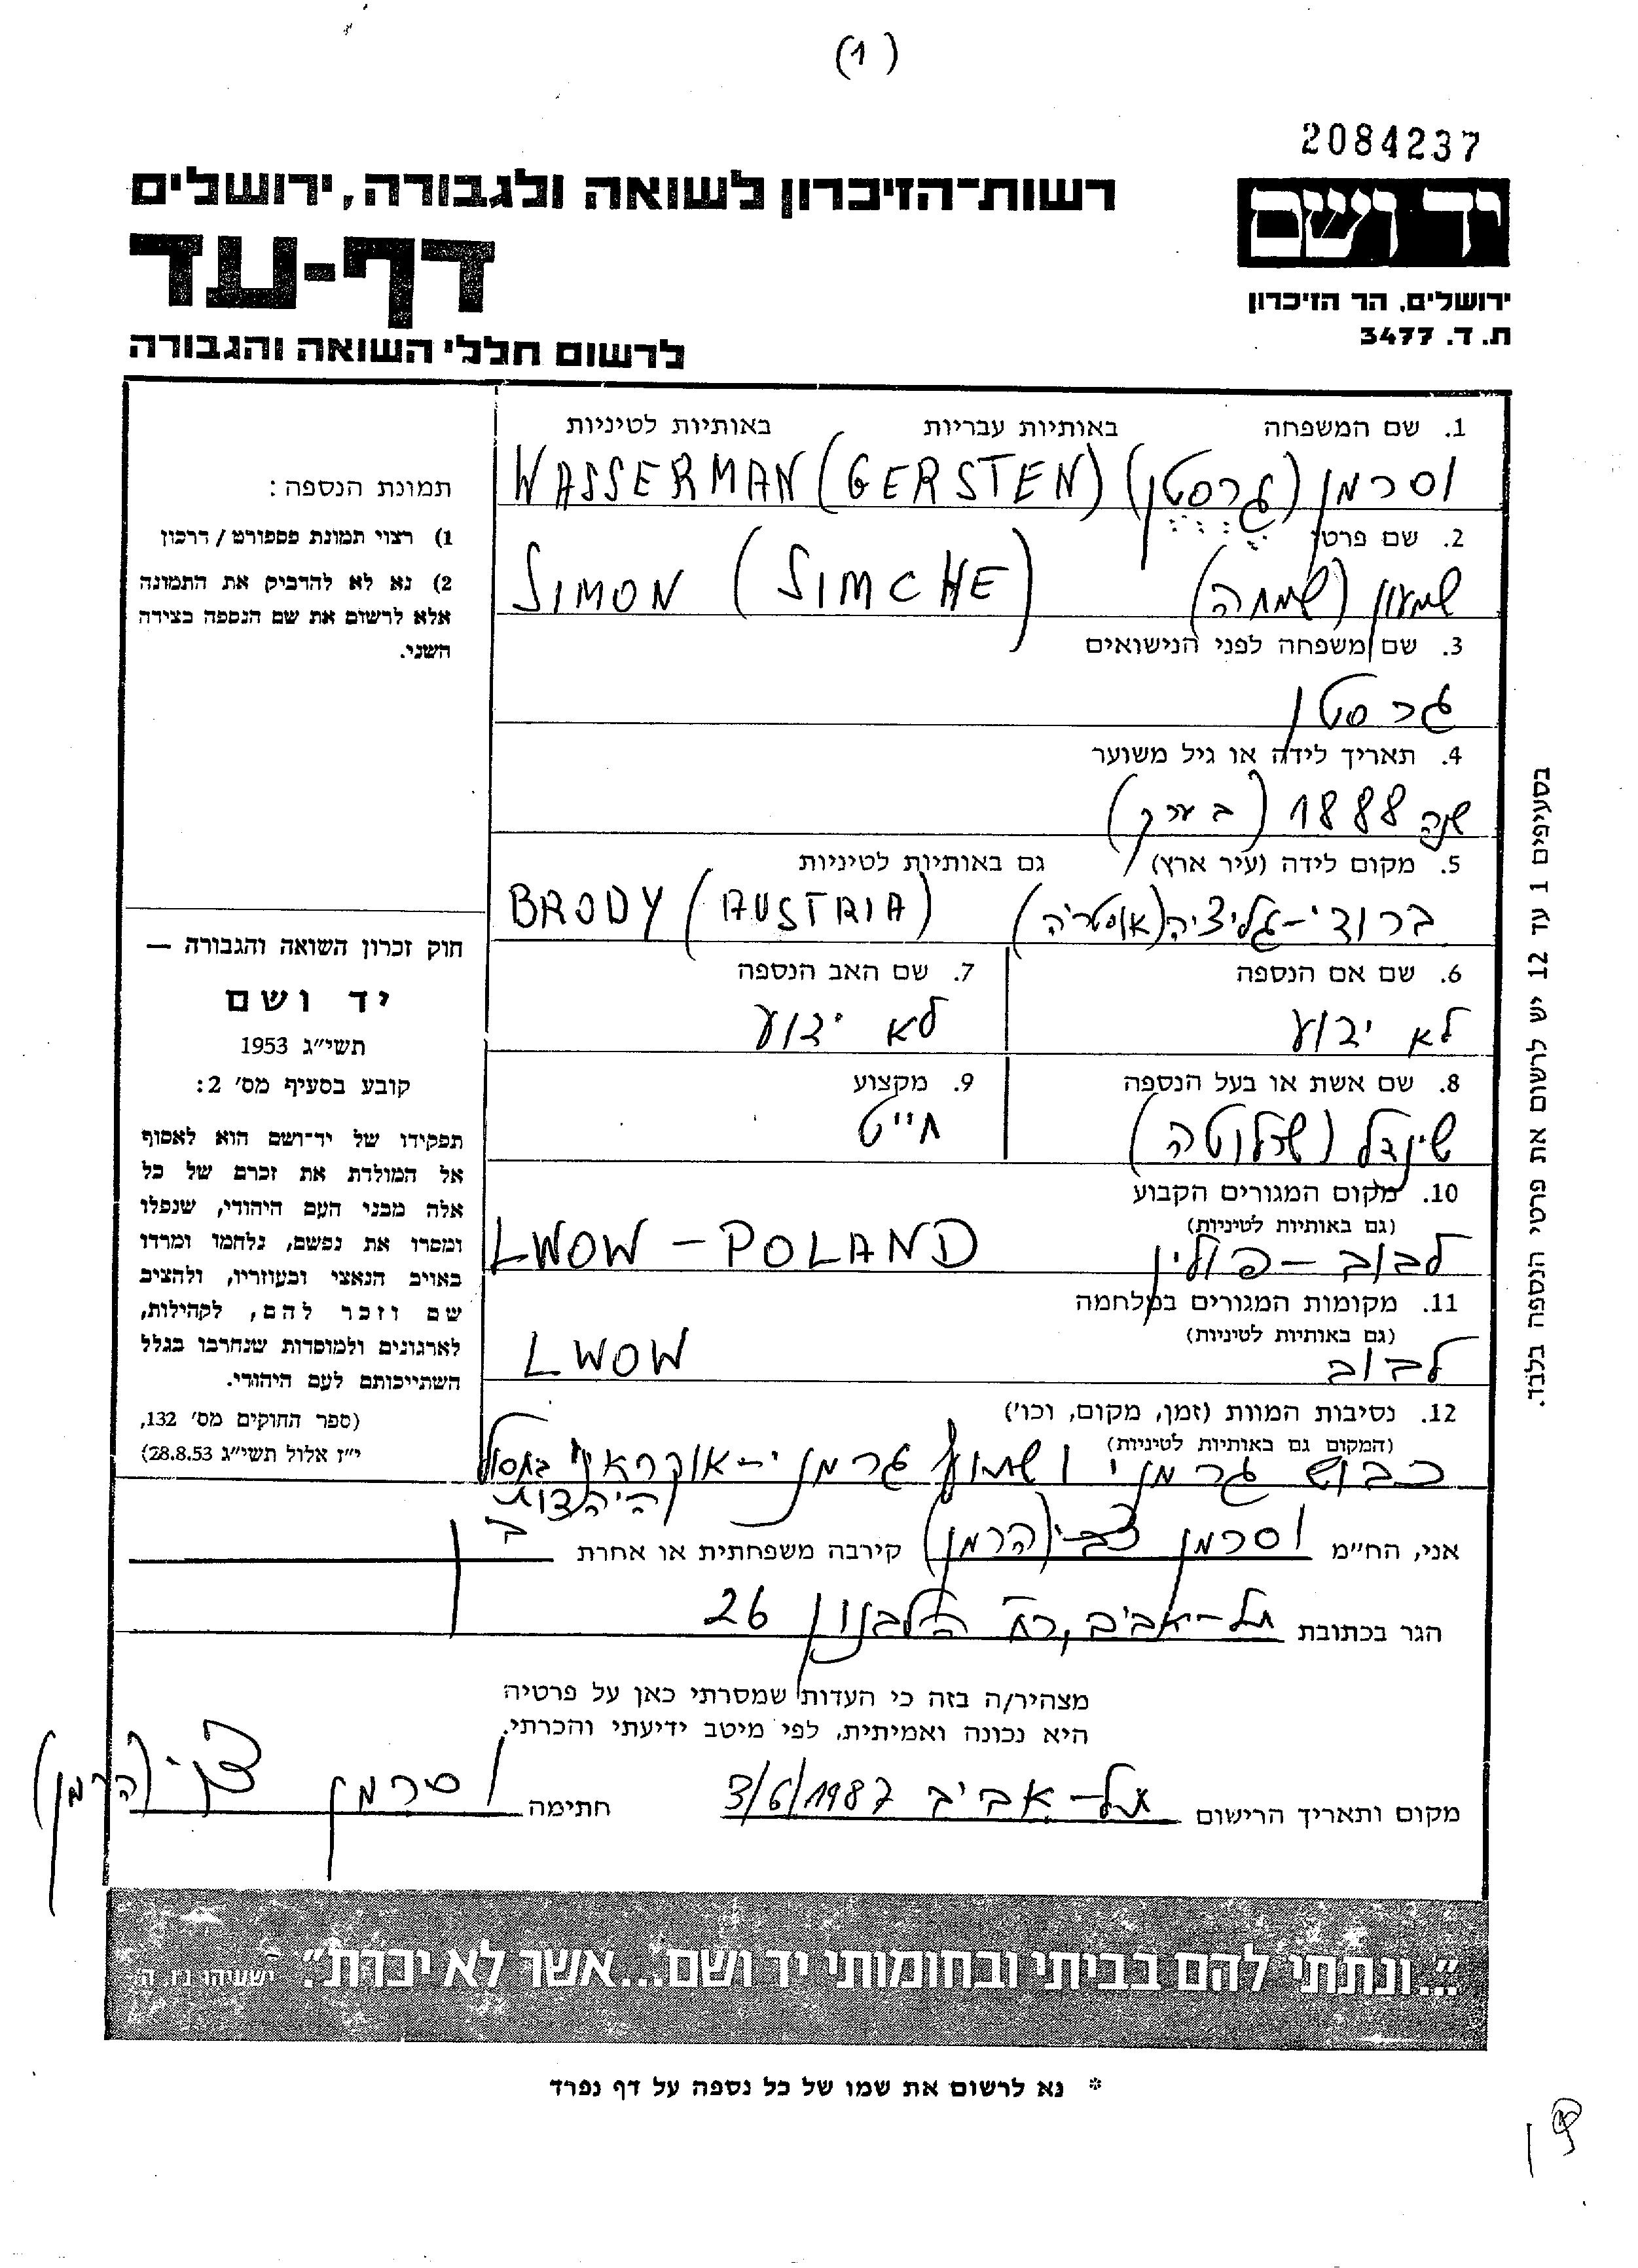 (1)
2084237
יד ושם
ירושלים, הר הזיכרון
ת. ד. 3477
רשות-הזיכרון לשואה ולגבורה, ירושלים
דף-עד
לרשום חללי השואה והגבורה
1. שם המשפחה באותיות עבריות באותיות לטיניות
וסרמן (גרסטן) WASSERMAN (GERSTEN)
2. שם פרטי
שמעון (שמחה) SIMON (SIMCHE)
3. שם משפחה לפני הנישואים
גרסטן
4. תאריך לידה או גיל משוער
שנה 1888 (בערך)
5. מקום לידה (עיר ארץ) גם באותיות לטיניות
ברודי-גליציה (אוסטריה) BRODY (AUSTRIA)
6. שם אם הנספה 7. שם האב הנספה
לא ידוע לא ידוע
8. שם אשת או בעל הנספה 9. מקצוע
שינדל (שרלוטה) חייט
10. מקום המגורים הקבוע
(גם באותיות לטיניות)
לבוב - פולין LWOW - POLAND
11. מקומות המגורים במלחמה
(גם באותיות לטיניות)
לבוב LWOW
12. נסיבות המוות (זמן, מקום, וכו')
(המקום גם באותיות לטיניות)
כבוש גרמני ושתוף גרמני-אוקראיני בחסול
היהדות
אני, הח"מ וסרמן צבי (הרמן) קירבה משפחתית או אחרת
הגר בכתובת תל-אביב, רח' הלבנון 26
מצהיר/ה בזה כי העדות שמסרתי כאן על פרטיה
היא נכונה ואמיתית, לפי מיטב ידיעתי והכרתי.
מקום ותאריך הרישום תל-אביב 3/6/1987 חתימה וסרמן צבי (הרמן)
תמונת הנספה:
1) רצוי תמונת פספורט / דרכון
2) נא לא להדביק את התמונה
אלא לרשום את שם הנספה בצידה
השני.
חוק זכרון השואה והגבורה —
יד ושם
תשי"ג 1953
קובע בסעיף מס' 2:
תפקידו של יד-ושם הוא לאסוף
אל המולדת את זכרם של כל
אלה מבני העם היהודי, שנפלו
ומסרו את נפשם, נלחמו ומרדו
באויב הנאצי ובעוזריו, ולהציב
שם וזכר להם, לקהילות,
לארגונים ולמוסדות שנחרבו בגלל
השתייכותם לעם היהודי.
(ספר החוקים מס' 132,
י"ז אלול תשי"ג 28.8.53)
בסעיפים 1 עד 12 יש לרשום את פרטי הנספה בלבד.
"...ונתתי להם בביתי ובחומותי יד ושם... אשר לא יכרת". ישעיהו נו, ה'
* נא לרשום את שמו של כל נספה על דף נפרד